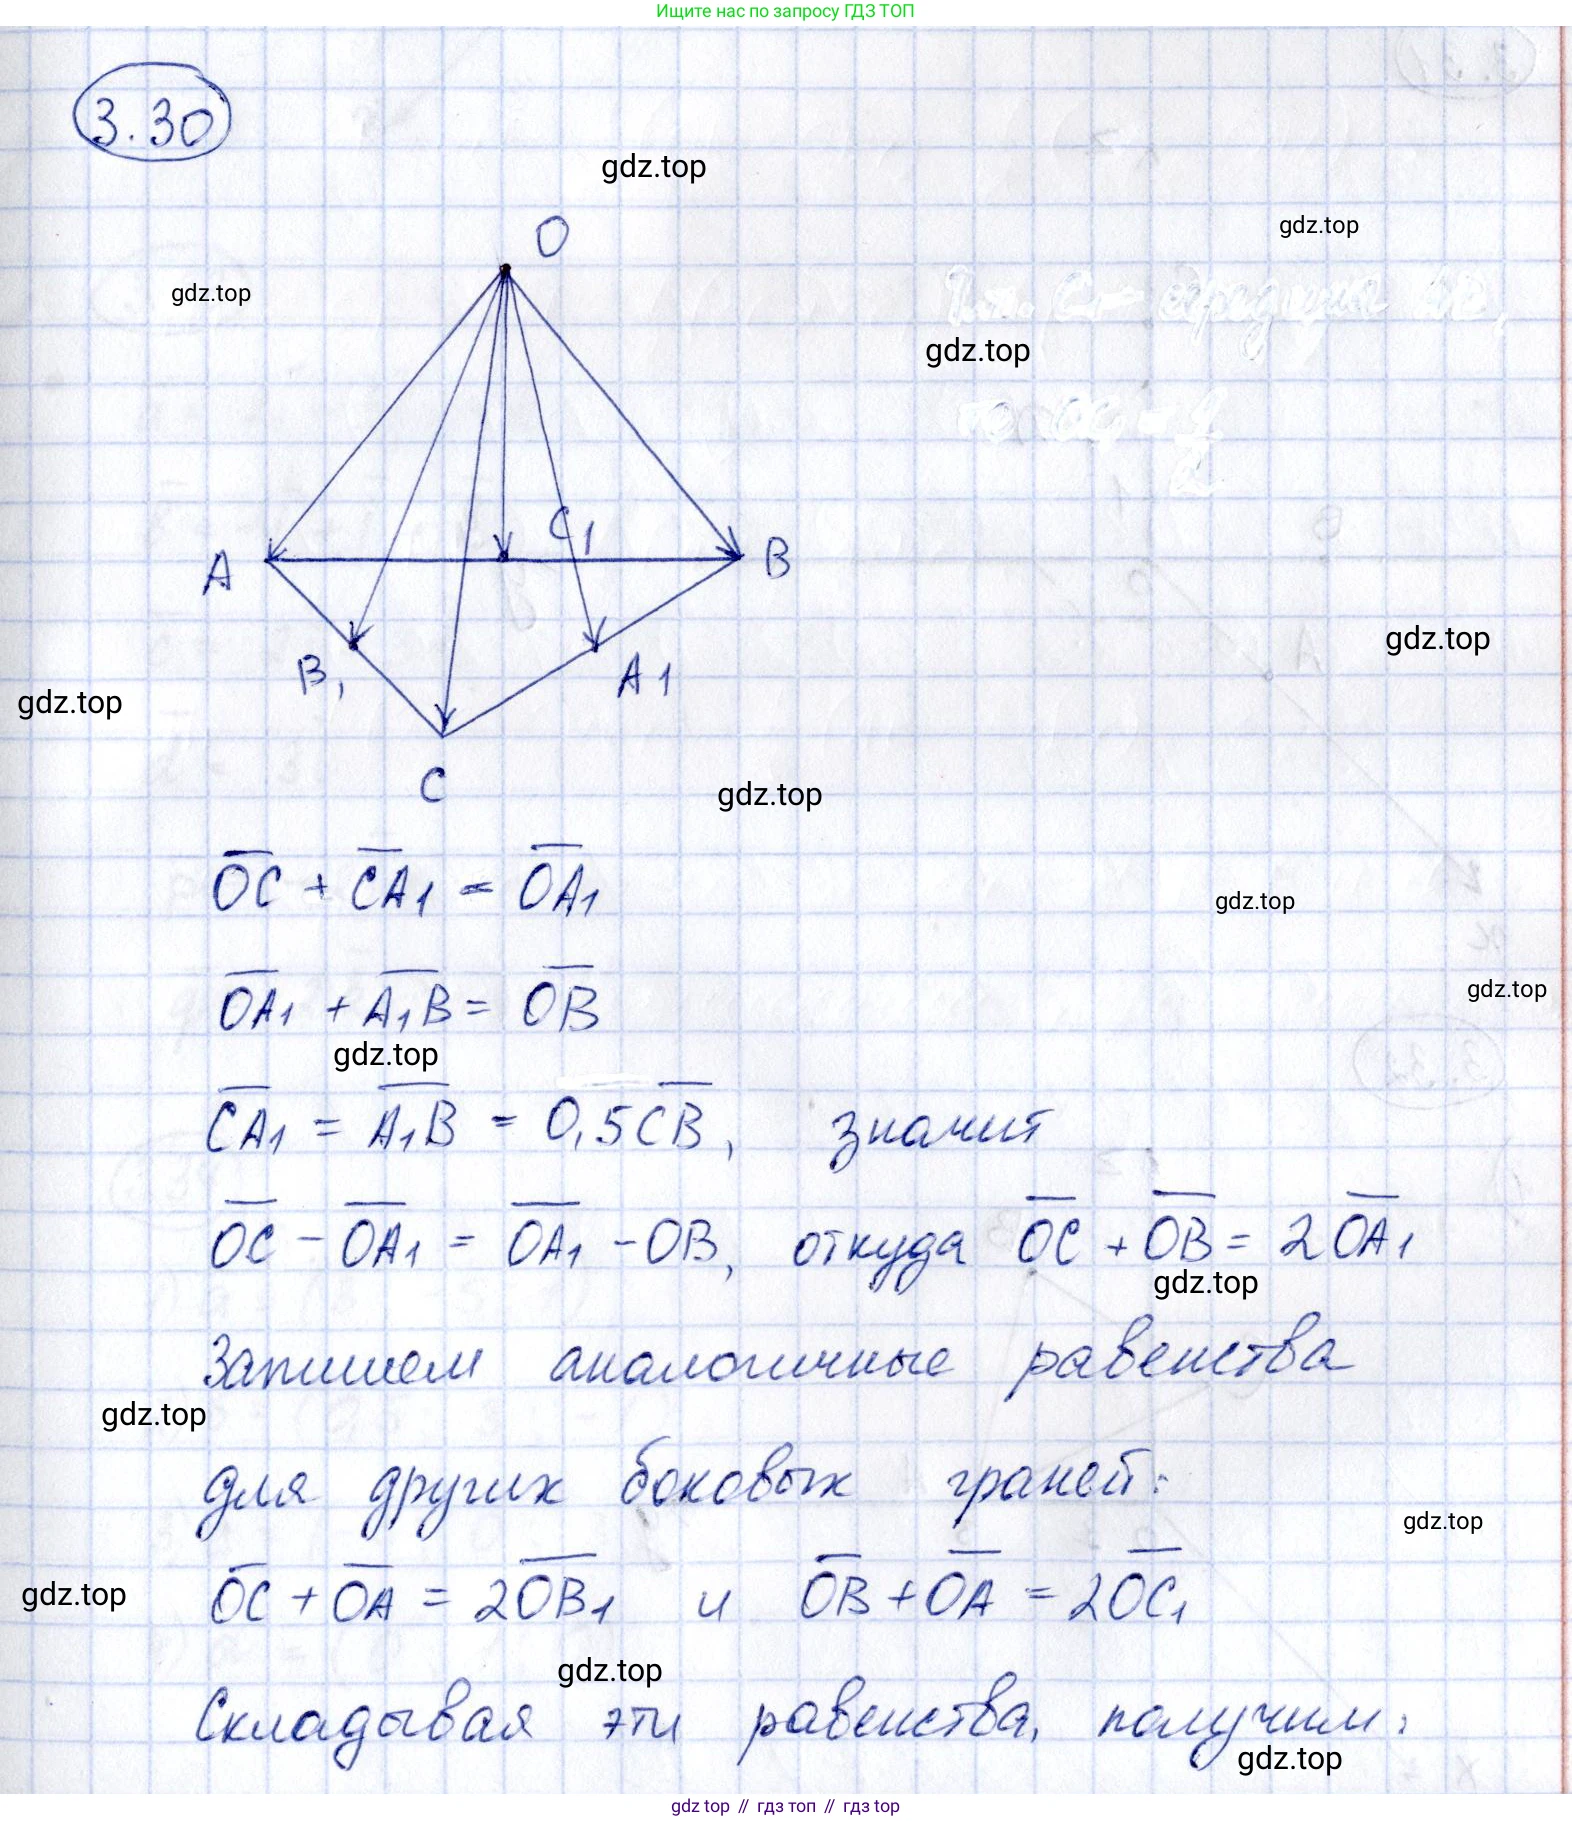 Ищите нас по запросу ГДЗ ТОП
3.30
gdz.top
O
gdz.top
gdz.top
gdz.top
C₁
A
B
gdz.top
B₁
A₁
gdz.top
C
gdz.top
O̅C̅ + C̅A̅₁ = O̅A̅₁
gdz.top
O̅A̅₁ + A̅₁B̅ = O̅B̅
gdz.top
gdz.top
C̅A̅₁ = A̅₁B̅ = 0,5C̅B̅, значит
O̅C̅ - O̅A̅₁ = O̅A̅₁ - OB, откуда O̅C̅ + O̅B̅ = 2O̅A̅₁
gdz.top
Запишем аналогичные равенства
gdz.top
для других боковых граней:
gdz.top
O̅C̅ + O̅A̅ = 2O̅B̅₁ и O̅B̅ + O̅A̅ = 2O̅C̅₁
gdz.top
gdz.top
Складывая эти равенства, получим:
gdz.top
gdz top // гдз топ // гдз top